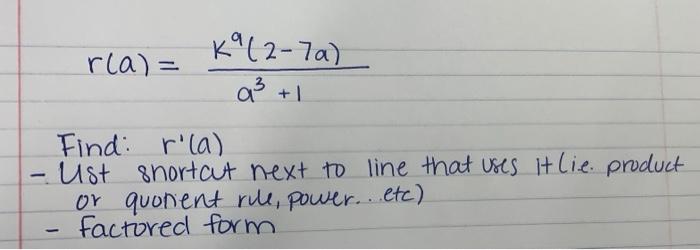 r(a) = K^a(2-7a) / a^3 +1
Find: r'(a)
- List shortcut next to line that uses it (i.e. product
or quotient rule, power...etc)
- factored form